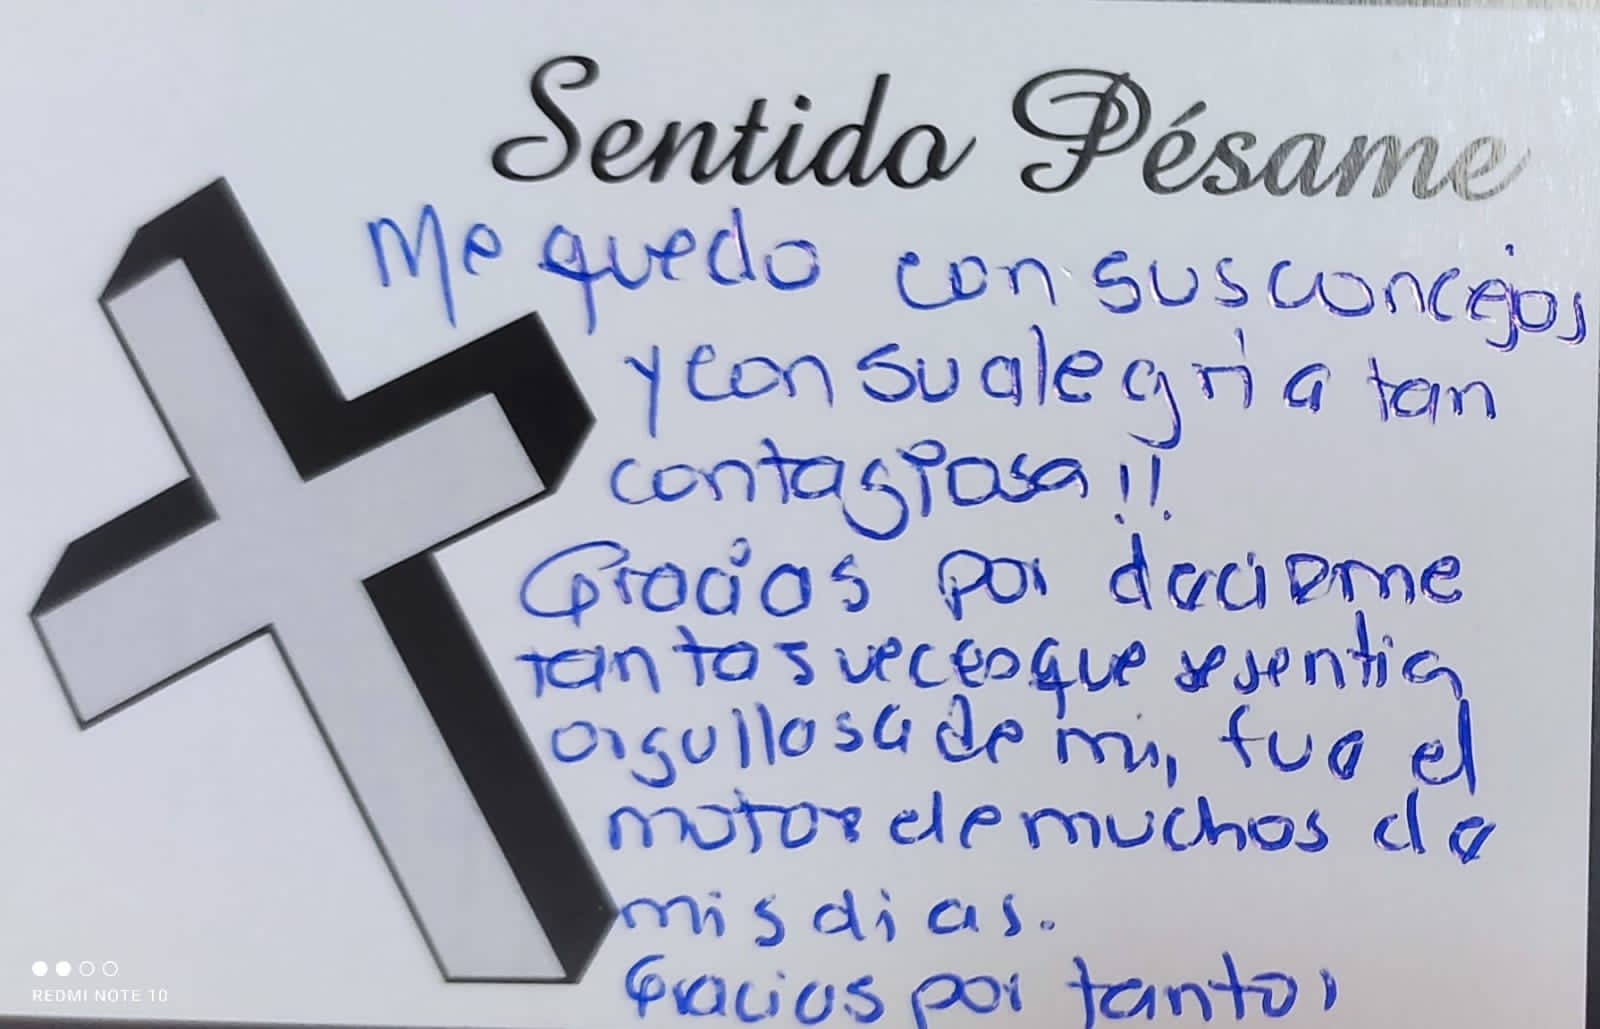 Sentido Pésame
Me quedo con sus concejos
y con su alegria tan
contagiosa!!
Gracias por decirme
tantas veces que se sentia
orgullosa de mi, fue el
motor de muchos de
mis dias.
Gracias por tanto,
REDMI NOTE 10